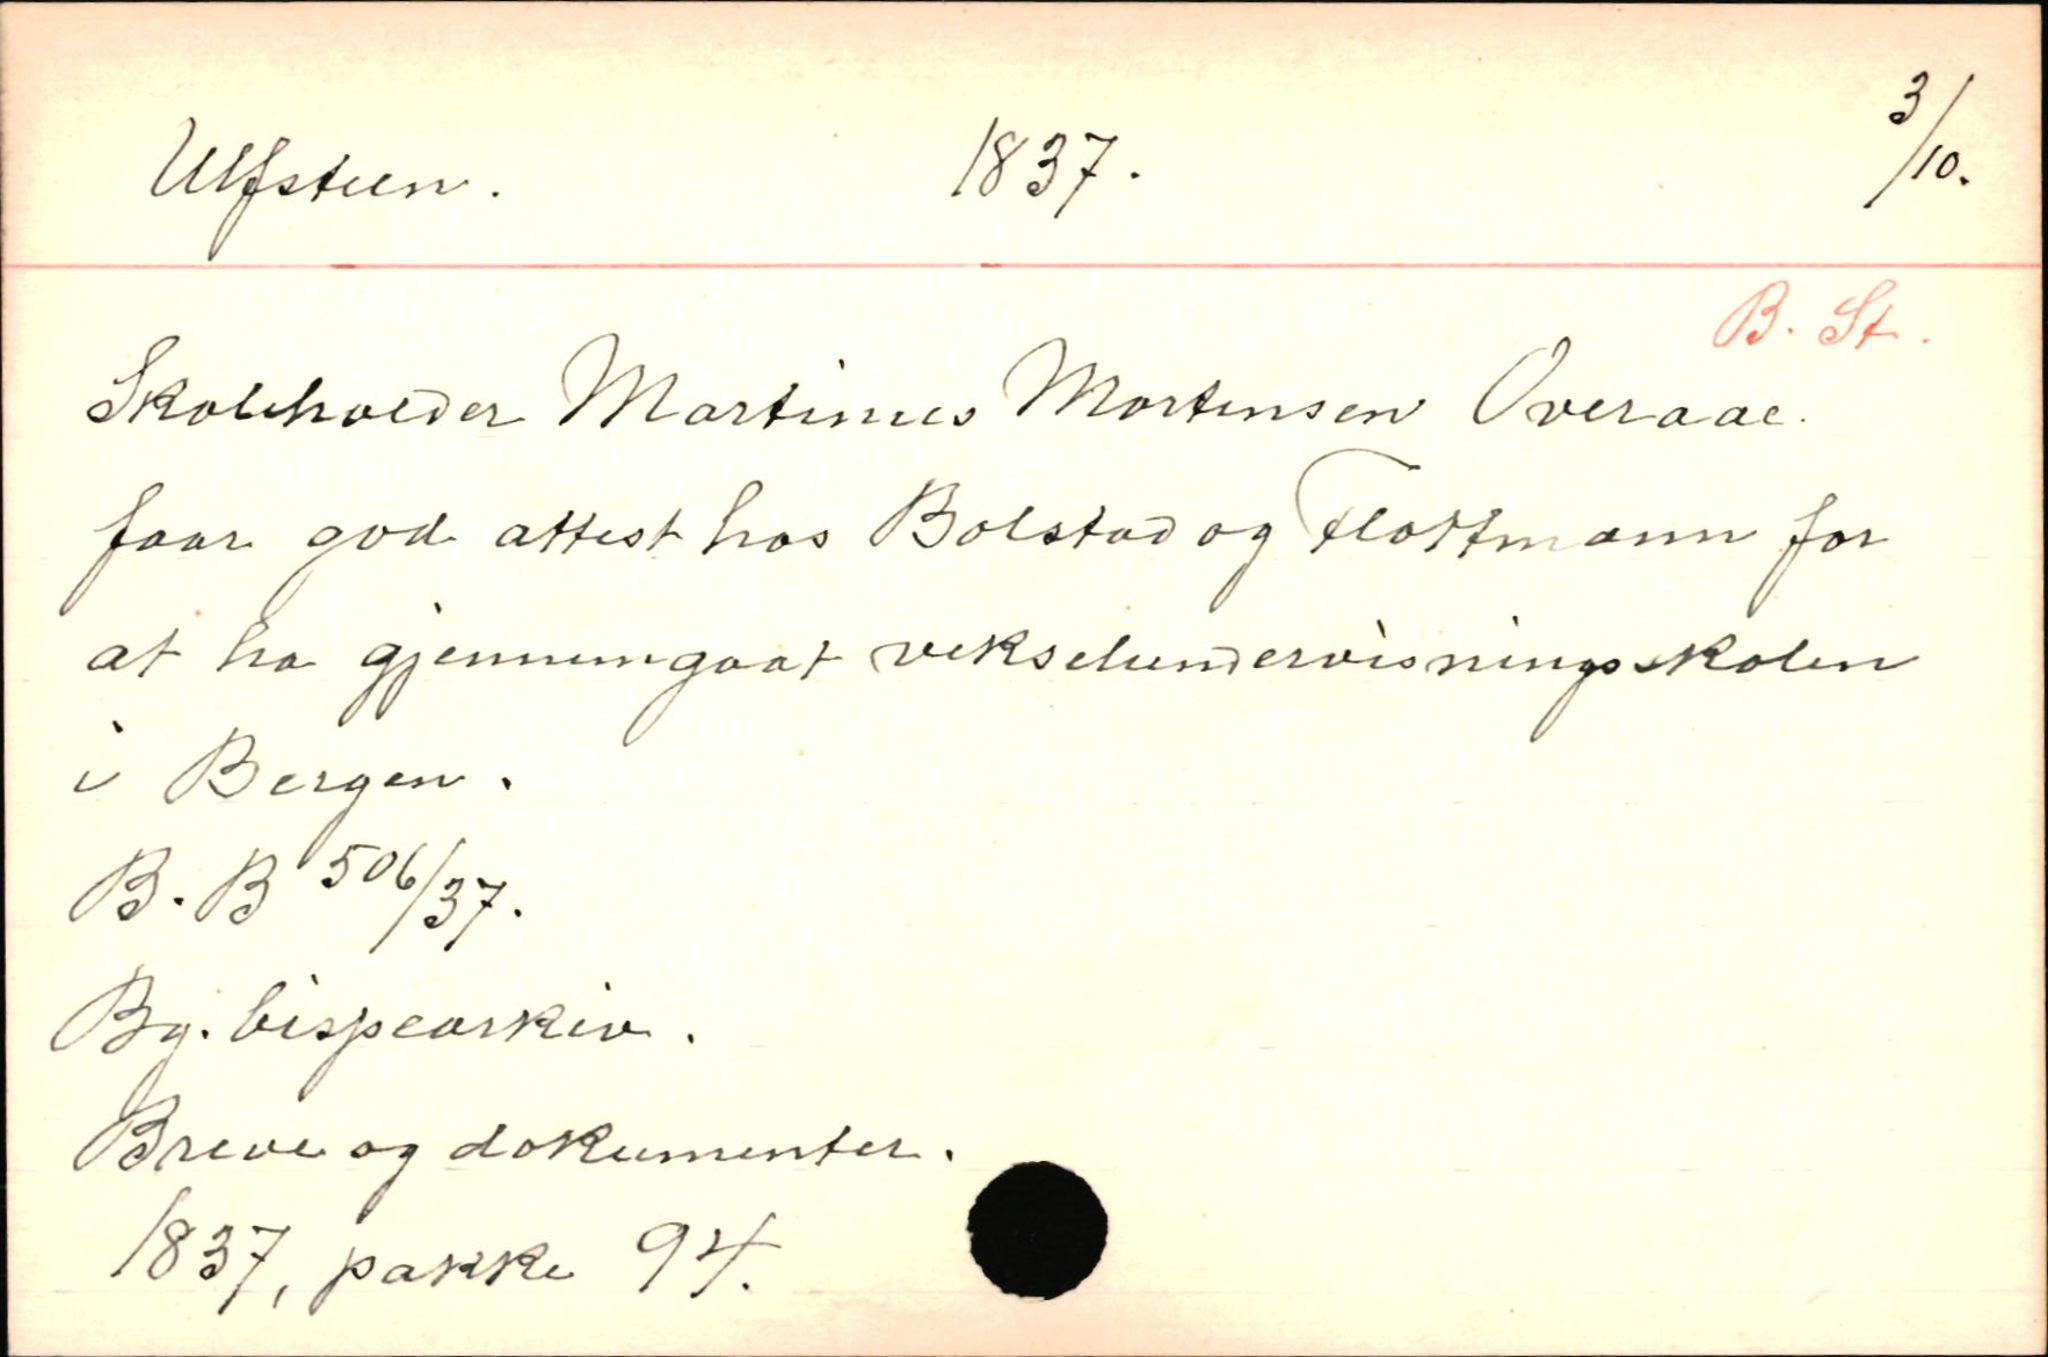 Ulfsteen. 1837. 3/10.
B. St.
Skoleholder Martinus Mortensen Overaae.
faar god attest hos Bolstad og Flottmann for
at ha gjennemgaat vekselundervisningsskolen
i Bergen.
B. B 506/37.
Bg. bispearkiv.
Breve og dokumenter.
1837, pakke 94.